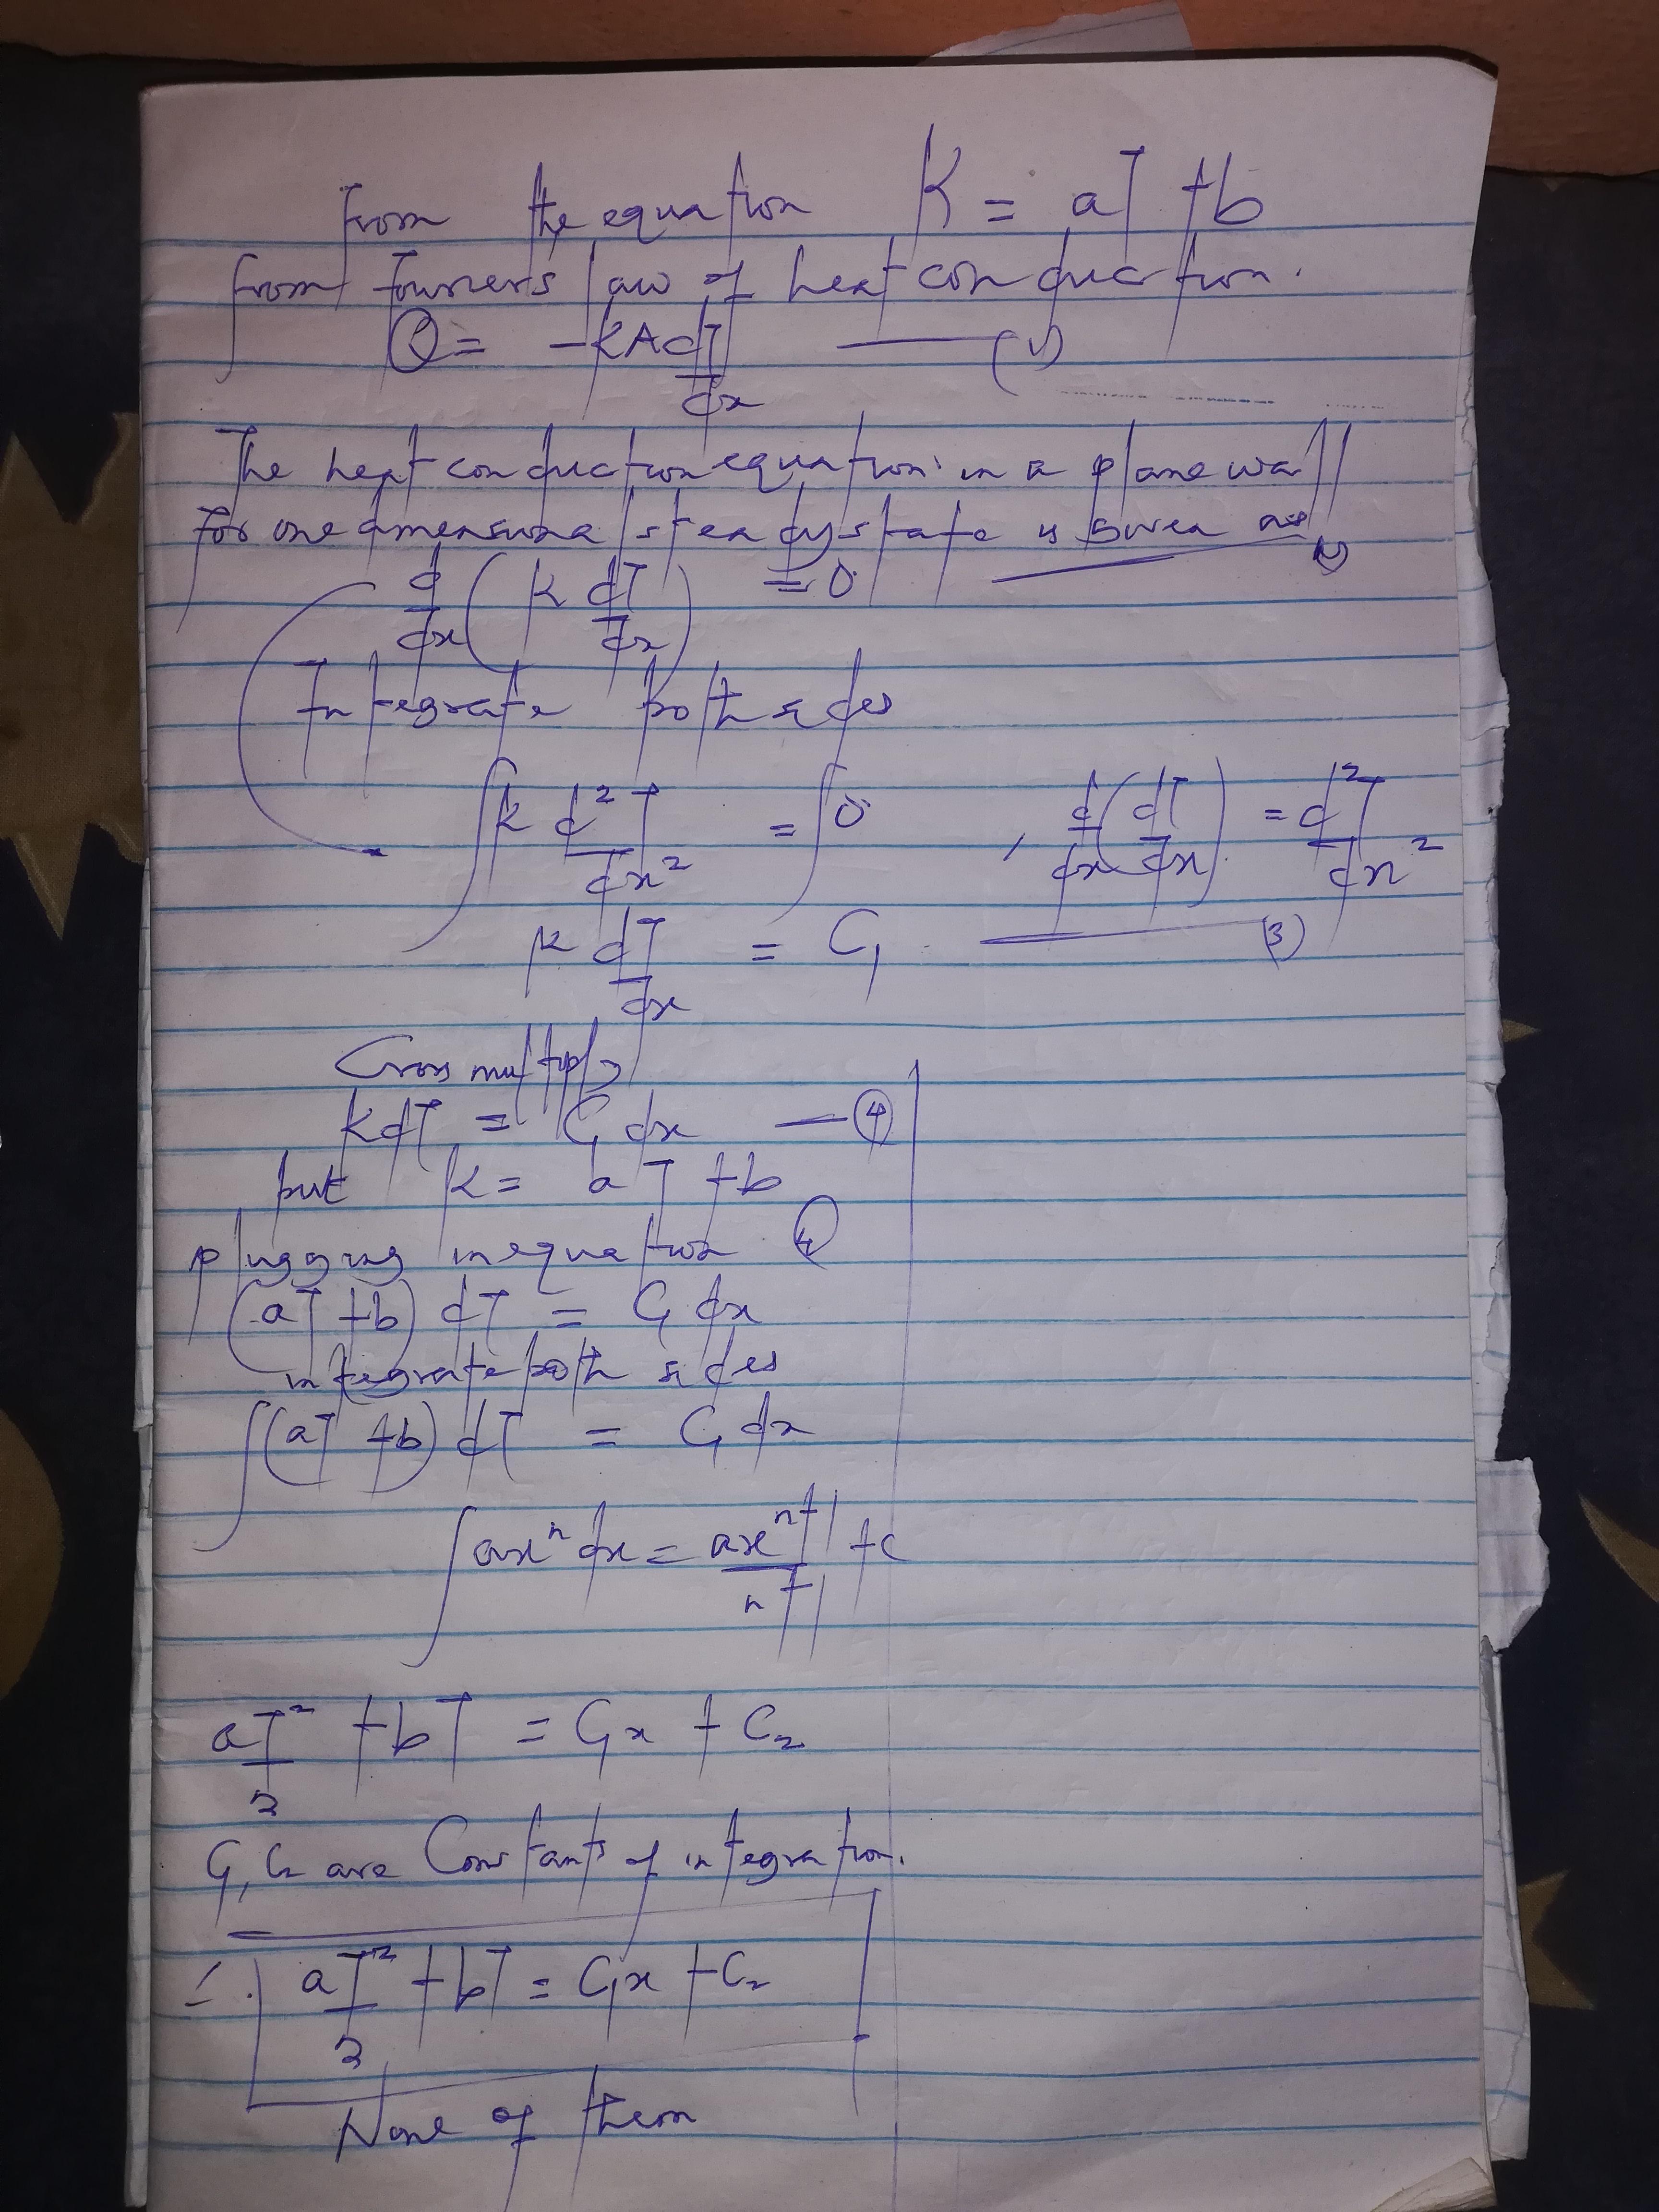 from the equation K = aT + b
from Fourier's law of heat conduction.
Q = -kA dT/dx —— (1)
The heat conduction equation in a plane wall
for one dimensional steady state is given as
d/dx (k dT/dx) = 0
Integrate both sides
∫k d²T/dx² = ∫0 , d/dx (dT/dx) = d²T/dx²
k dT/dx = C₁ —— (3)
Cross multiply
kdT = C₁ dx — (4)
but k = aT + b
plugging in equation (4)
(aT + b) dT = C₁ dx
integrate both sides
∫(aT + b) dT = C₁ dx
∫axⁿ dx = axⁿ⁺¹/n+1 + c
aT²/2 + bT = C₁x + C₂
C₁, C₂ are Constants of integration.
∴ aT²/2 + bT = C₁x + C₂
None of them